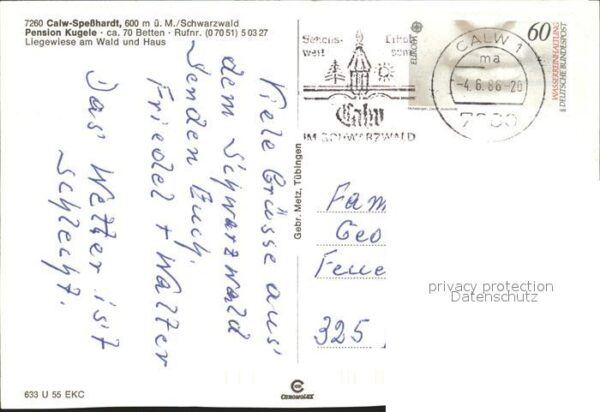 7260 Calw-Speßhardt, 600 m ü. M./Schwarzwald
Pension Kugele · ca. 70 Betten · Rufnr. (0 70 51) 5 03 27
Liegewiese am Wald und Haus
Viele Grüsse aus
dem Schwarzwald
senden Euch.
Friedel + Walter
Das Wetter ist
schlecht.
633 U 55 EKC
Gebr. Metz, Tübingen
CHROMOLUX
Sehens-
wert
Erhol-
sam
Calw
IM SCHWARZWALD
CALW 1
ma
-4.6.86-20
EUROPA
60
WASSERREINHALTUNG
DEUTSCHE BUNDESPOST
Fam
Geo
Feue
325
privacy protection
Datenschutz